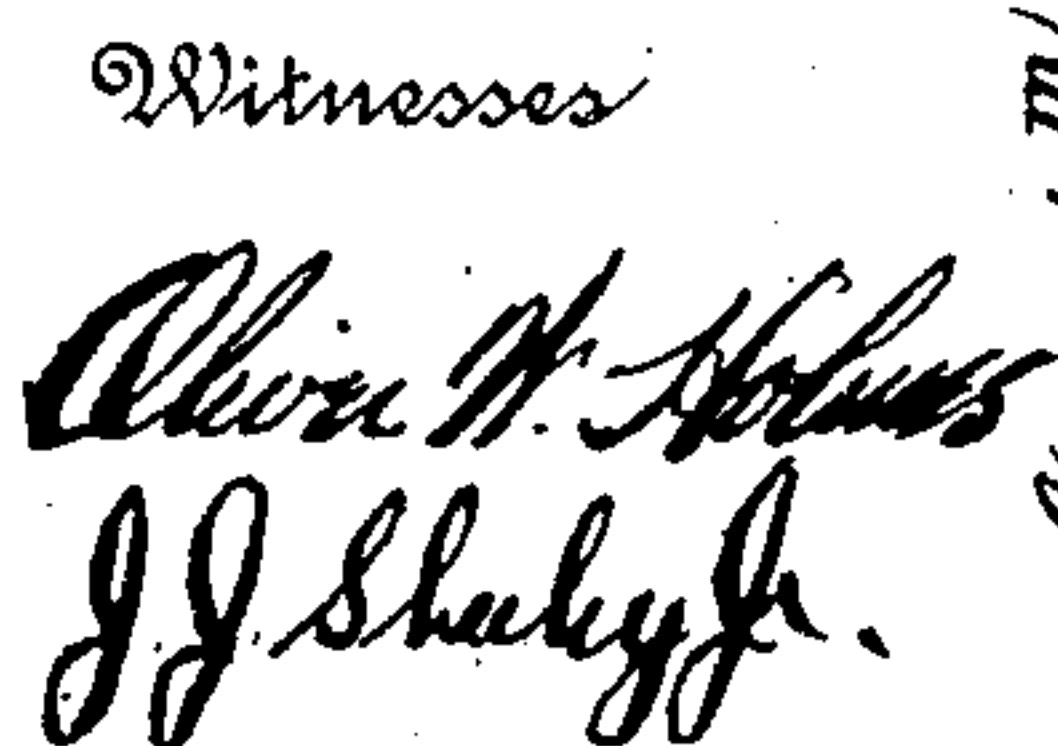 Witnesses
Oliver W. Holmes
J. J. Sheehy Jr.